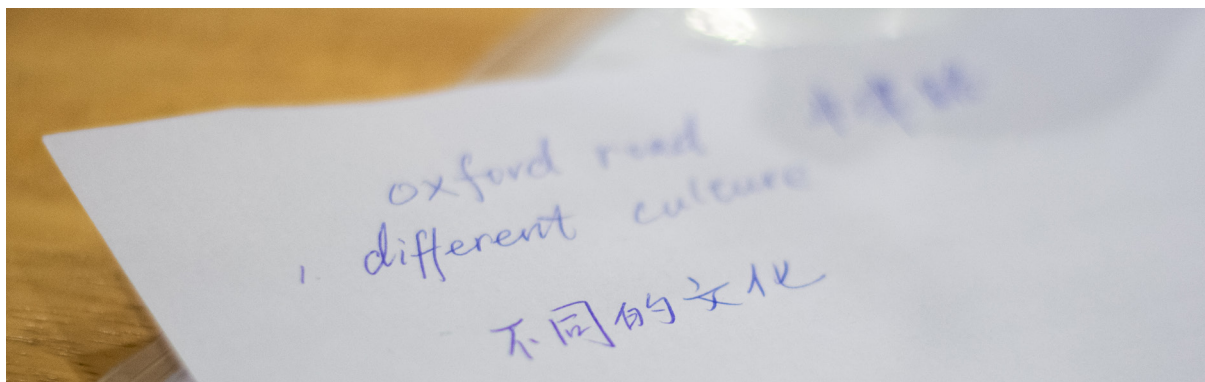 oxford road
, different culture
不同的文化